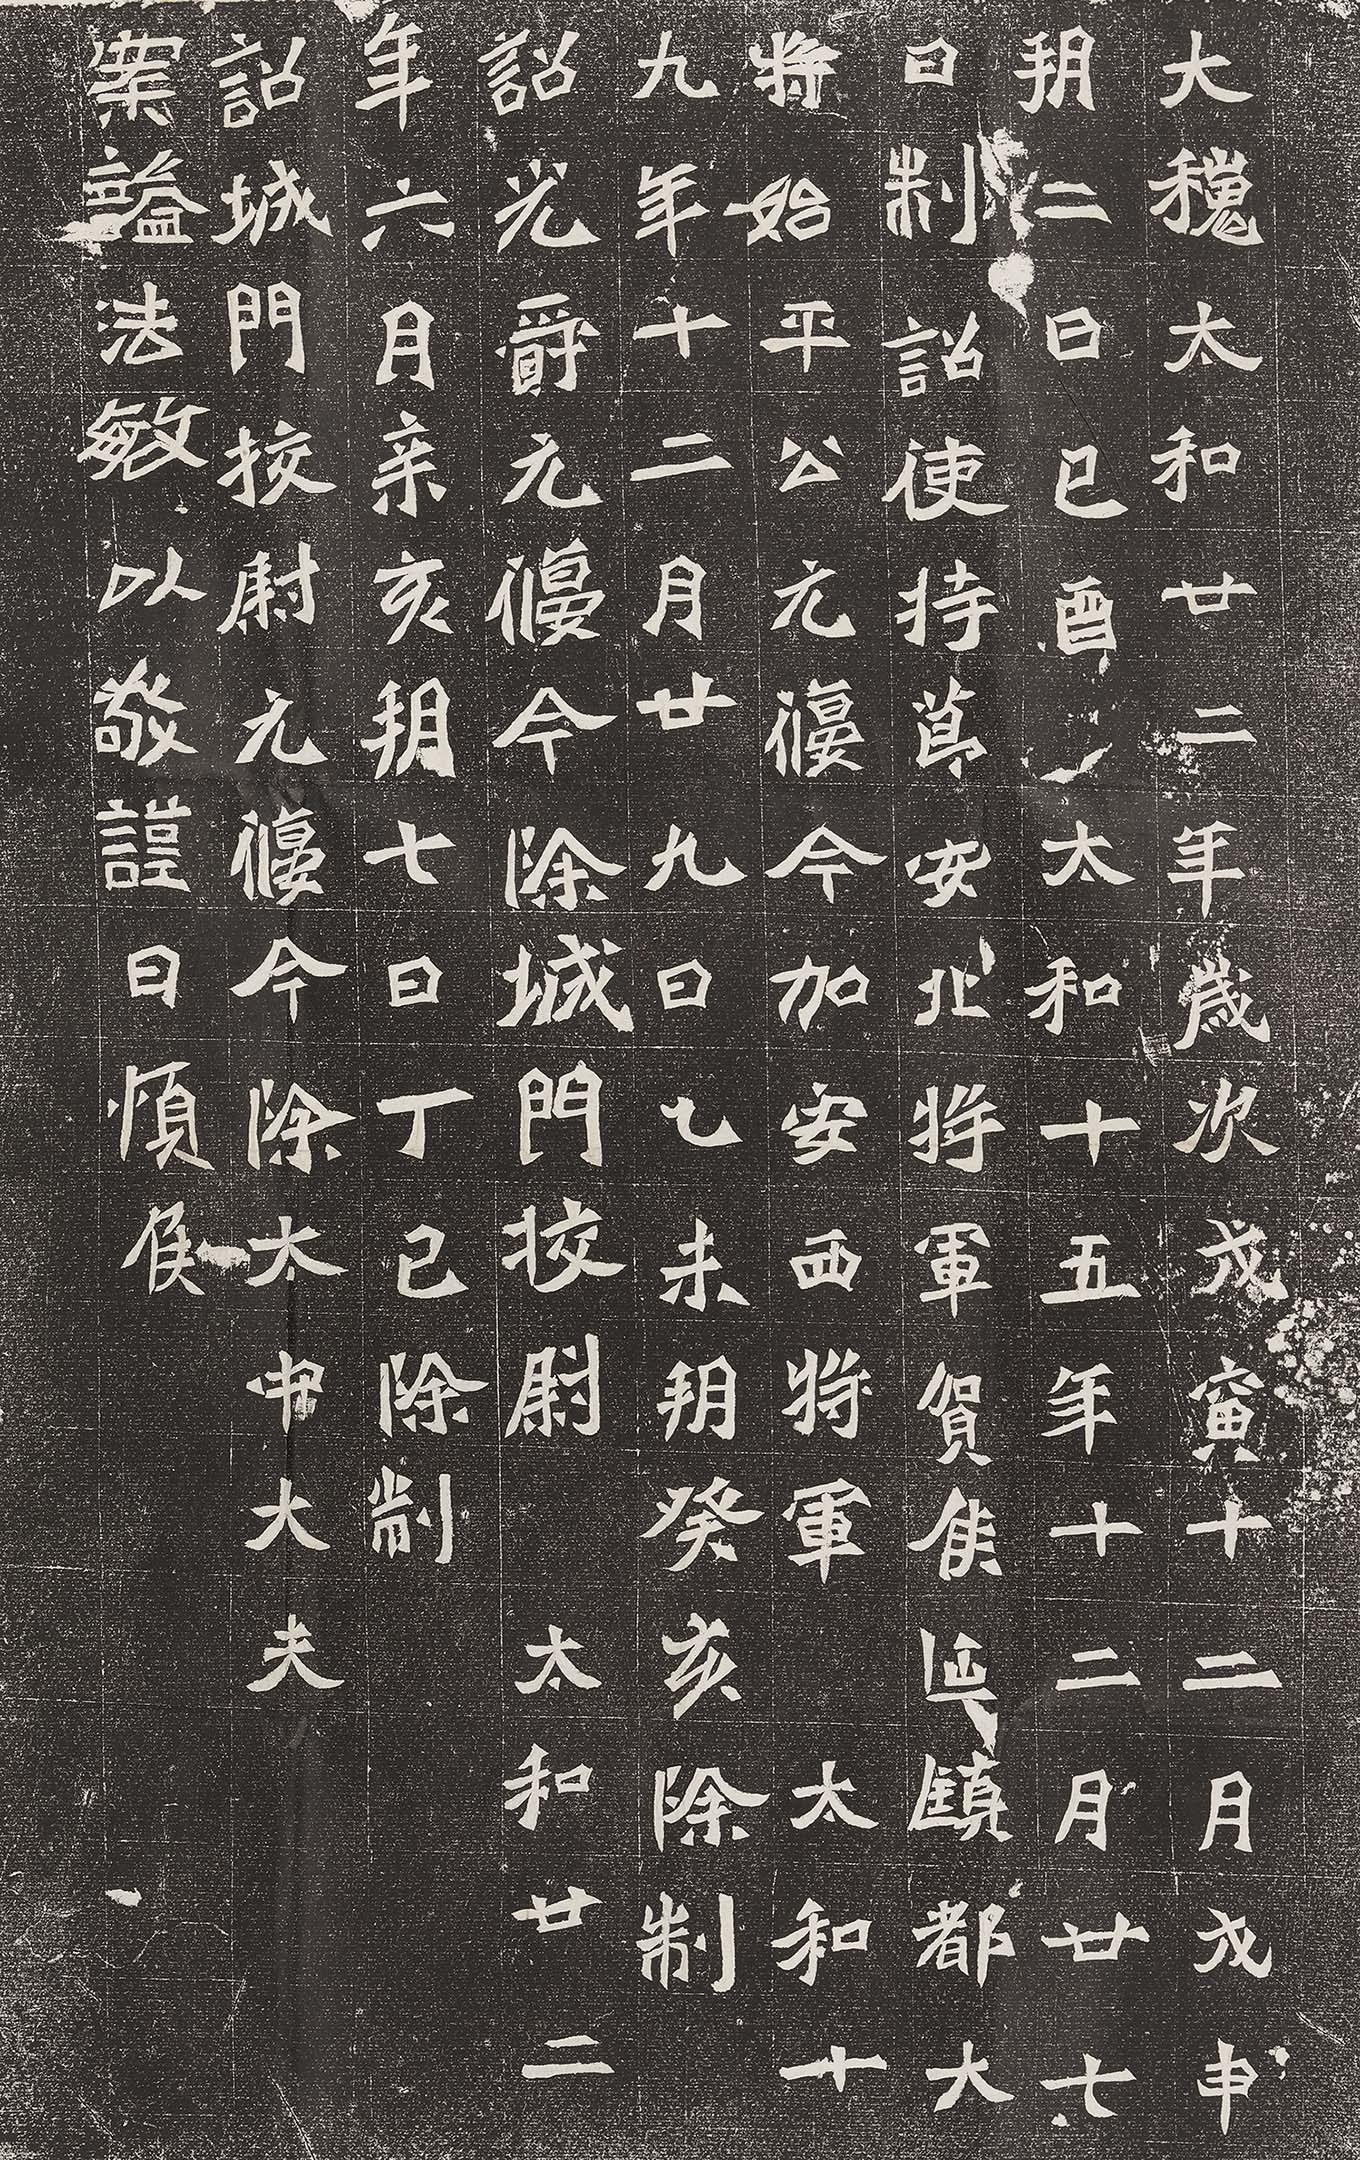 大魏太和廿二年歲次戊寅十二月戊申
朔二日己酉太和十五年十二月廿七
日制詔使持節安北將軍賀侯延鎮都大
將始平公元偃今加安西將軍　太和十
九年十二月廿九日乙未朔癸亥除制
詔光爵元偃今除城門挍尉　太和廿二
年六月辛亥朔七日丁巳除制
詔城門挍尉元偃今除太中大夫
案謚法敏以敬謹曰順侯